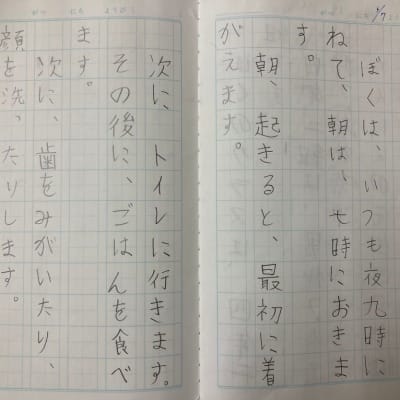 ぼくは、いつも夜九時に
ねて、朝は、七時におきま
す。
朝、起きると、最初に着
がえます。
次に、トイレに行きます。
その後に、ごはんを食べ
ます。
次に、歯をみがいたり、
顔を洗ったりします。